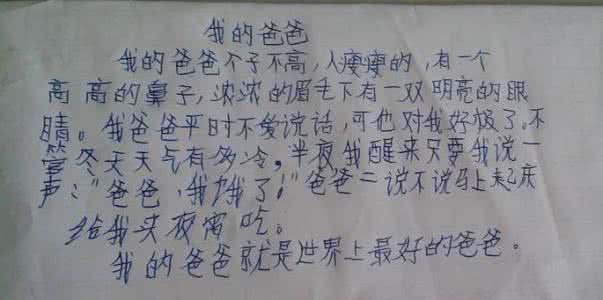 我的爸爸
我的爸爸个子不高,人瘦瘦的,有一个
高高的鼻子,浓浓的眉毛下有一双明亮的眼
睛。我爸爸平时不爱说话,可他对我好极了。不
管冬天天气有多冷,半夜我醒来只要我说一
声:“爸爸,我饿了!”爸爸二说不说马上起床
给我夹夜宵吃。
我的爸爸就是世界上最好的爸爸。